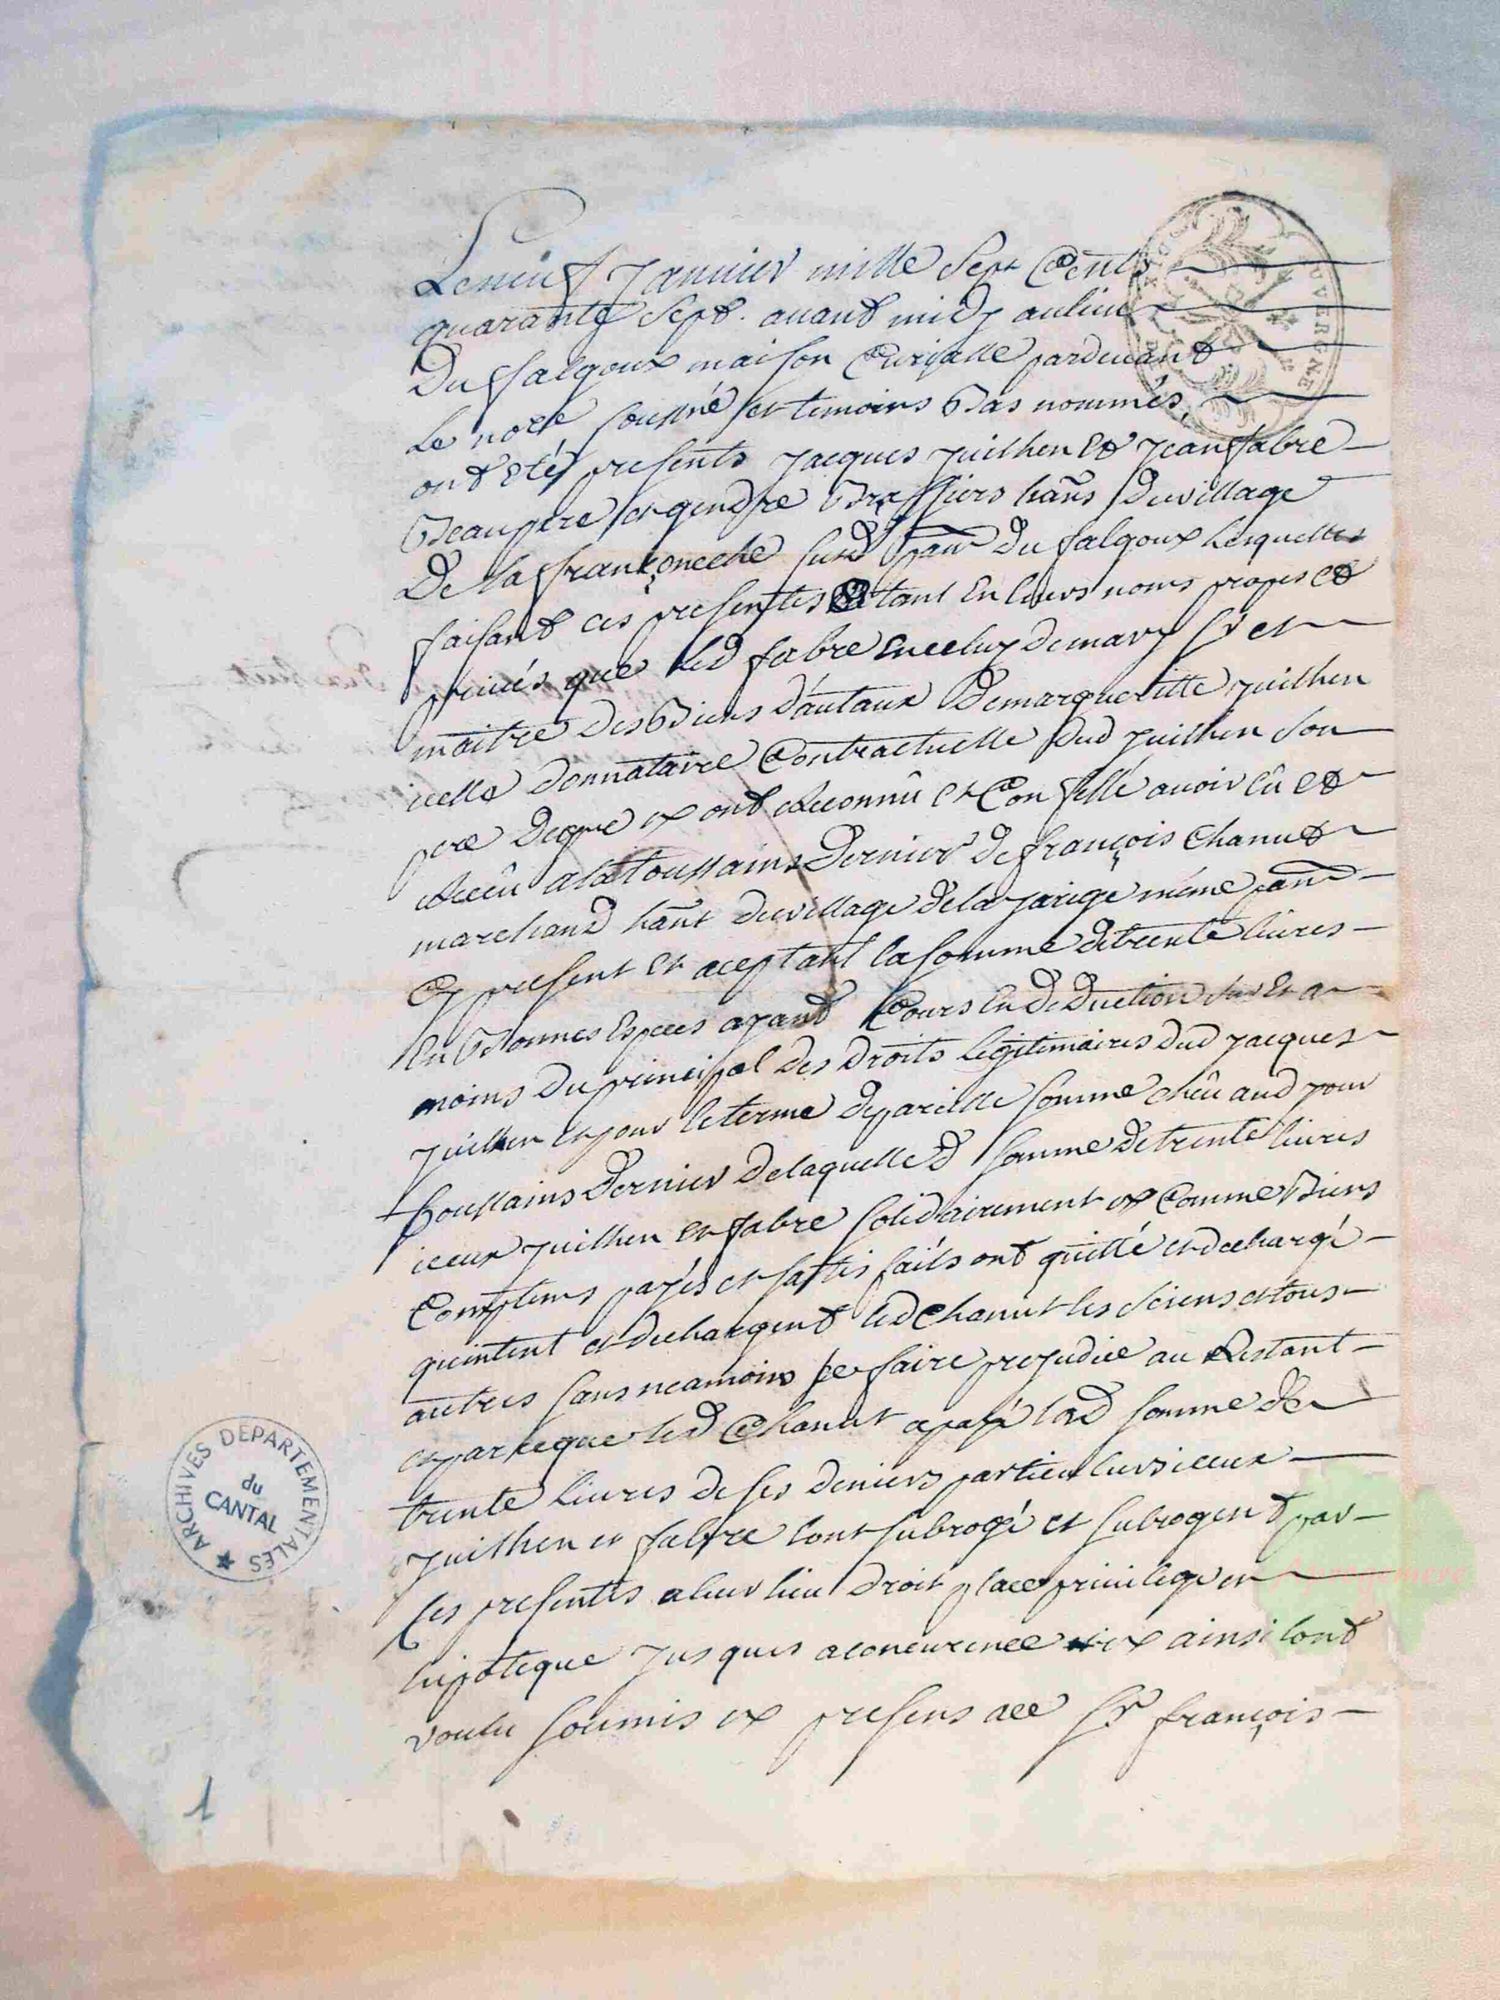 Le neuf Janvier mille Sept Cents
quarante Sept. avant midy au lieu
Du falgoux maison Curialle pardevant
Le nore soussné et temoins Bas nommés,
ont eté presents Jacques Juilhen et Jean fabre
Beaupere et gendre Brassiers hans Du village
De la franconeche susd parr Du falgoux lesquelles
faisant ces presentes tant En leurs noms propes et
privés que led fabre En celuy de mary Sr et
maitre des Biens d'autaux De marqueritte Juilhen
icelle donnataire Contractuelle Dud Juilhen Son
pere De gre ex ont Reconnû et Confessé avoir Eû et
Receû a la toussains Dernier De françois Chanut
marchand hant Du village De la Jarige même parr
Cy present et aceptant la Somme de trente livres
En Bonnes Especes ayant Cours En De Duction et a
moins Du principal des Droits legitimaires dud Jacques
Juilhen et pour le terme de pareille Somme echeu aud Jour
toussains Dernier de laquelle d Somme de trente livres
iceux Juilhen et fabre Solidairement ex Comme Biens
Comptens payés et satisfaits ont quitté et decharqé
quintent et dechargent led Chanut les Siens et tous
autres sans neamoins se faire prejudice au Restant
et parceque led Chanut a payé lad Somme de
trente livres de ses deniers particulieurs iceux
Juilhen et fabre l'ont subrogé et subrogent par
Ces presentes a leur lieu Droit place privilege et
hipoteque Jusques a concurence ex ainsi l'ont
voulu Soumis ex presens ace Sr françois
ARCHIVES DEPARTEMENTALES
du
CANTAL
1